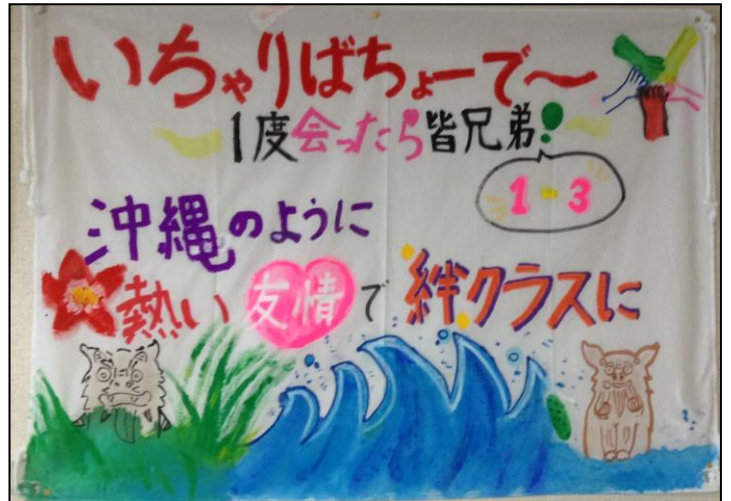 いちゃりばちょーで〜
〜1度会ったら皆兄弟!〜
1-3
沖縄のように
熱い友情で絆クラスに